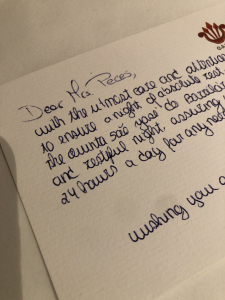 Dear Mrs. Peces,
with the utmost care and attention
to ensure a night of absolute rest
the Quinta são José do Barrilar
and restful night, assuring
24 hours a day for any need
wishing you a